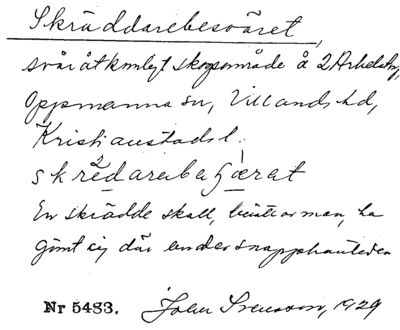 Skräddarebesväret,
svåråtkomligt skogsområde å 2 Arkelstorp,
Oppmanna sn, Villands hd,
Kristianstads l.
En skrädde skall, berättar man, ha
gömt sig där under snapphanetiden
Nr 5483. John Svensson, 1929